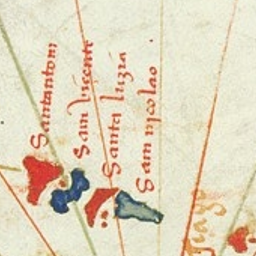 Santantoni
Sam vicente
Santa luzia
Sam nycolao